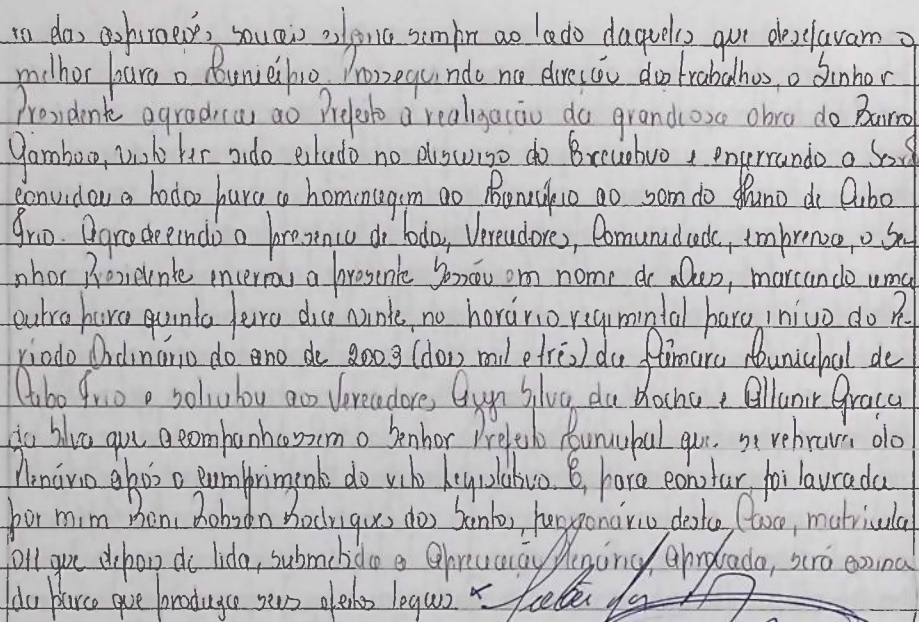 ra das aspirações sociais estaria sempre ao lado daqueles que desejavam o
melhor para o Município. Prosseguindo na direção dos trabalhos, o Senhor
Presidente agradeceu ao Prefeito a realização da grandiosa obra do Bairro
Gamboa, visto ter sido citado no discurso do Executivo e encerrando a Sessão
convidou a todos para a homenagem ao Município ao som do Hino de Cabo
Frio. Agradecendo a presença de todos, Vereadores, Comunidade, imprensa, o Se-
nhor Presidente encerrou a presente Sessão em nome de Deus, marcando uma
outra para quinta feira dia vinte, no horário regimental para início do Pe-
ríodo Ordinário do ano de 2003 (dois mil e três) da Câmara Municipal de
Cabo Frio e solicitou aos Vereadores Silva da Rocha e Graça
da Silva que acompanhassem o Senhor Prefeito Municipal que se retirava do
Plenário após o cumprimento do rito Legislativo. E, para constar, foi lavrada
por mim Robson Rodrigues dos Santos, funcionário desta Casa, matrícula
011 que depois de lida, submetida a Apreciação Plenária, Aprovada, será assina
da para que produza seus efeitos legais.